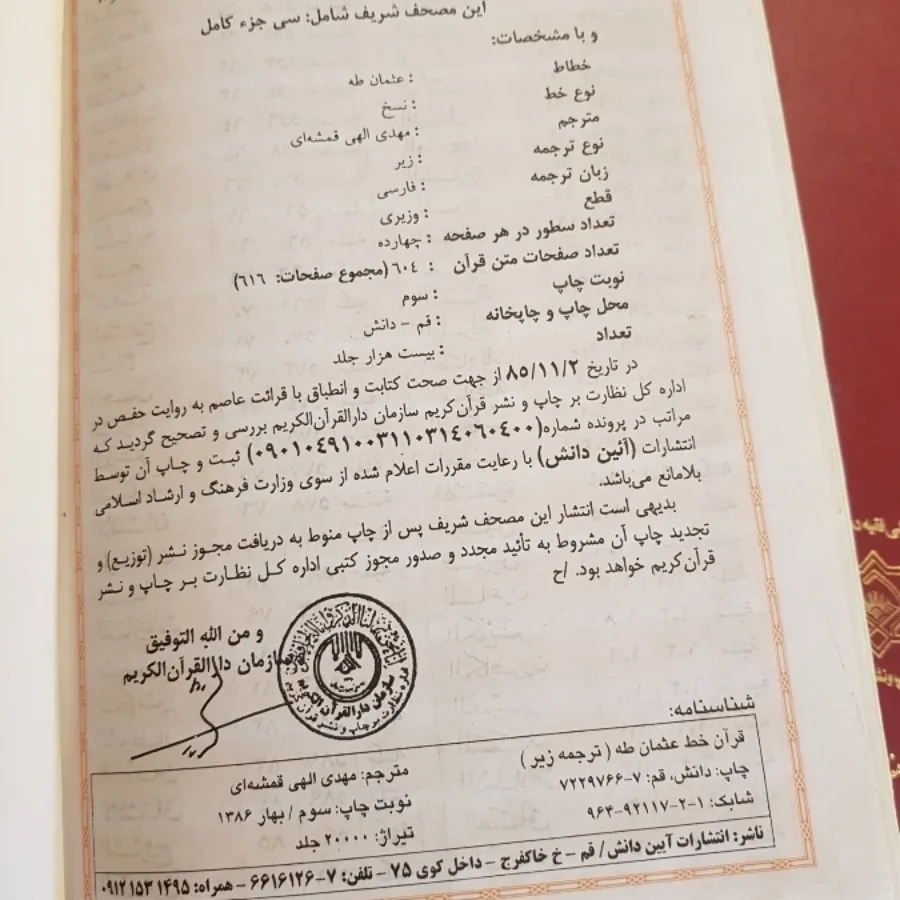 این مصحف شریف شامل: سی جزء کامل
و با مشخصات:
خطاط : عثمان طه
نوع خط : نسخ
مترجم : مهدی الهی قمشه‌ای
نوع ترجمه : زیر
زبان ترجمه : فارسی
قطع : وزیری
تعداد سطور در هر صفحه : چهارده
تعداد صفحات متن قرآن : ۶۰۴ (مجموع صفحات: ۶۱۶)
نوبت چاپ : سوم
محل چاپ و چاپخانه : قم - دانش
تعداد : بیست هزار جلد
در تاریخ ۸۵/۱۱/۲ از جهت صحت کتابت و انطباق با قرائت عاصم به روایت حفص در
اداره کل نظارت بر چاپ و نشر قرآن‌کریم سازمان دارالقرآن‌الکریم بررسی و تصحیح گردید که
مراتب در پرونده شماره(۰۹۰۱۰۴۹۱۰۰۳۱۱۰۳۱۴۰۶۰۴۰۰) ثبت و چاپ آن توسط
انتشارات (آئین دانش) با رعایت مقررات اعلام شده از سوی وزارت فرهنگ و ارشاد اسلامی
بلامانع می‌باشد.
بدیهی است انتشار این مصحف شریف پس از چاپ منوط به دریافت مجوز نشر (توزیع) و
تجدید چاپ آن مشروط به تأئید مجدد و صدور مجوز کتبی اداره کل نظارت بر چاپ و نشر
قرآن‌کریم خواهد بود. /ح
و من الله التوفیق
سازمان دارالقرآن‌الکریم
سازمان دارالقرآن الکریم
اداره نظارت بر چاپ و نشر قرآن کریم
شناسنامه:
قرآن خط عثمان طه ( ترجمه زیر )
مترجم: مهدی الهی قمشه‌ای
چاپ: دانش، قم: ۷-۷۲۲۹۷۶۶
نوبت چاپ: سوم / بهار ۱۳۸۶
شابک: ۱-۲-۹۲۱۱۷-۹۶۴
تیراژ: ۲۰۰۰۰ جلد
ناشر: انتشارات آیین دانش / قم - خ خاکفرج - داخل کوی ۷۵ - تلفن: ۷-۶۶۱۶۱۲۶ - همراه: ۱۴۹۵ ۱۵۳ ۰۹۱۲